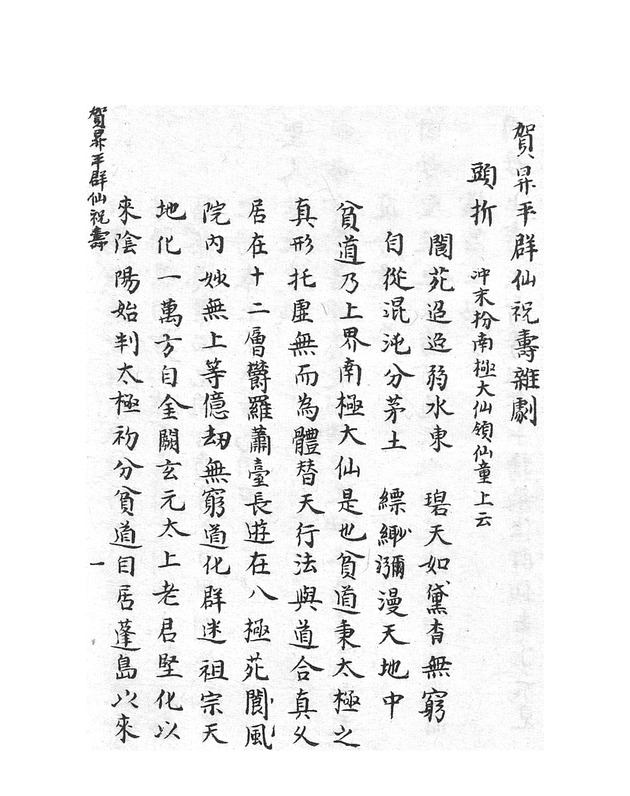 賀昇平群仙祝壽雜劇
頭折 冲末扮南極大仙領仙童上云
閬苑迢迢弱水東 碧天如黛杳無窮
自從混沌分茅土 縹緲瀰漫天地中
貧道乃上界南極大仙是也貧道秉太極之
真形托虛無而為體替天行法與道合真久
居在十二層鬱羅蕭臺長遊在八極苑閬風
院內妙無上等億劫無窮道化群迷祖宗天
地化一萬方自金闕玄元太上老君
化以
來陰陽始判太極初分貧道自居蓬島以來
賀昇平群仙祝壽
一